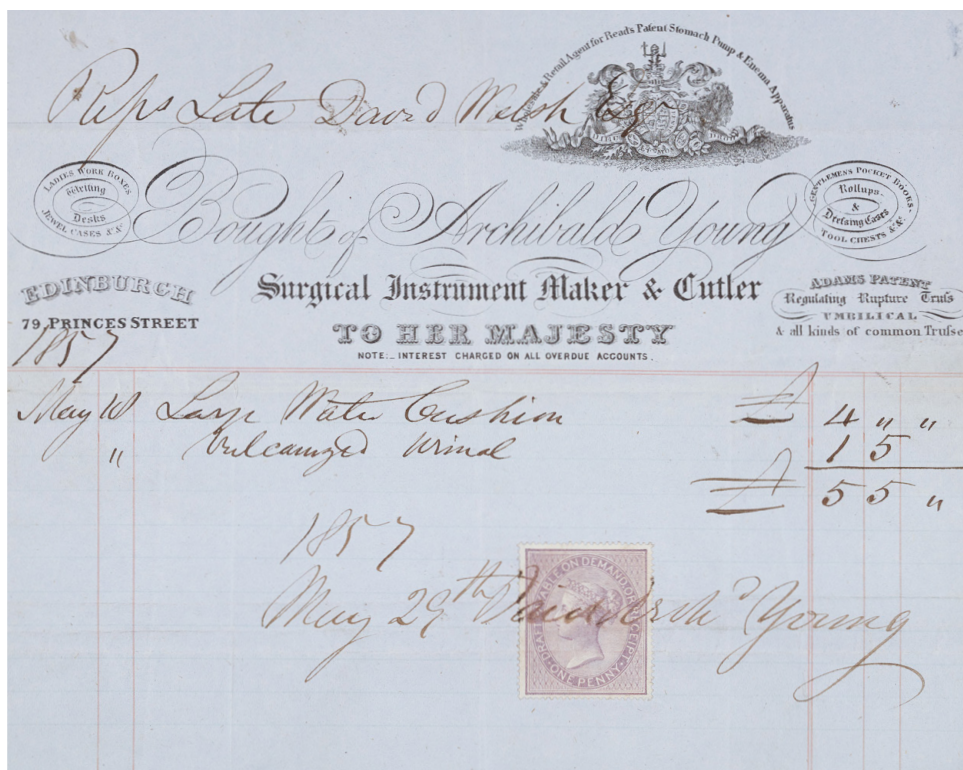 Wholesale & Retail Agent for Read's Patent Stomach Pump & Enema Apparatus
Reps Late David Welsh Esqr
LADIES WORK BOXES
Writing
Desks
JEWEL CASES &&
Bought of Archibald Young
GENTLEMENS POCKET BOOKS
Rollups
&
Dressing Cases
TOOL CHESTS &&
EDINBURGH
79, PRINCES STREET
Surgical Instrument Maker & Cutler
TO HER MAJESTY
NOTE:- INTEREST CHARGED ON ALL OVERDUE ACCOUNTS.
ADAMS PATENT
Regulating Rupture Truss
UMBILICAL
& all kinds of common Trusse
1857
May 18 Large Water Cushion £ 4 " "
" Vulcanized Urinal 1 5
£ 5 5 "
1857
May 29th Paid Archd Young
DRAFT PAYABLE ON DEMAND OR RECEIPT
ONE PENNY